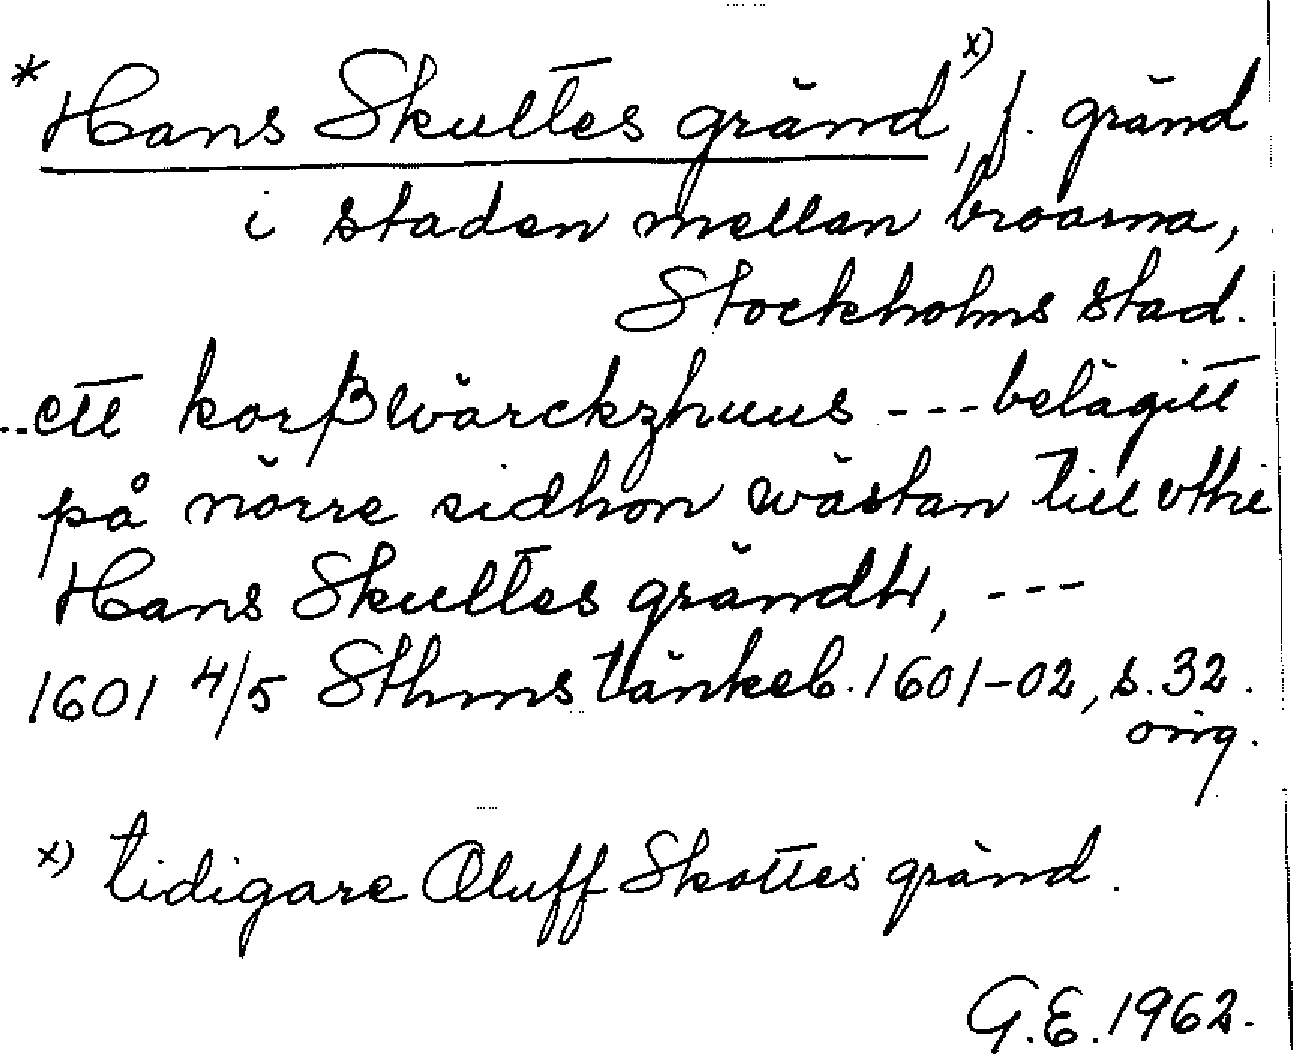 * Hans Skultes gränd, x) f. gränd
i staden mellan broarna,
Stockholms stad.
..ett korßwärckzhuus --- belägitt
på nörre sidhon wästan till vthi
Hans Skultes grändh, ---
1601 4/5 Sthms tänkeb. 1601-02, s. 32.
orig.
x) tidigare Oluff Skottes gränd.
G.E. 1962.